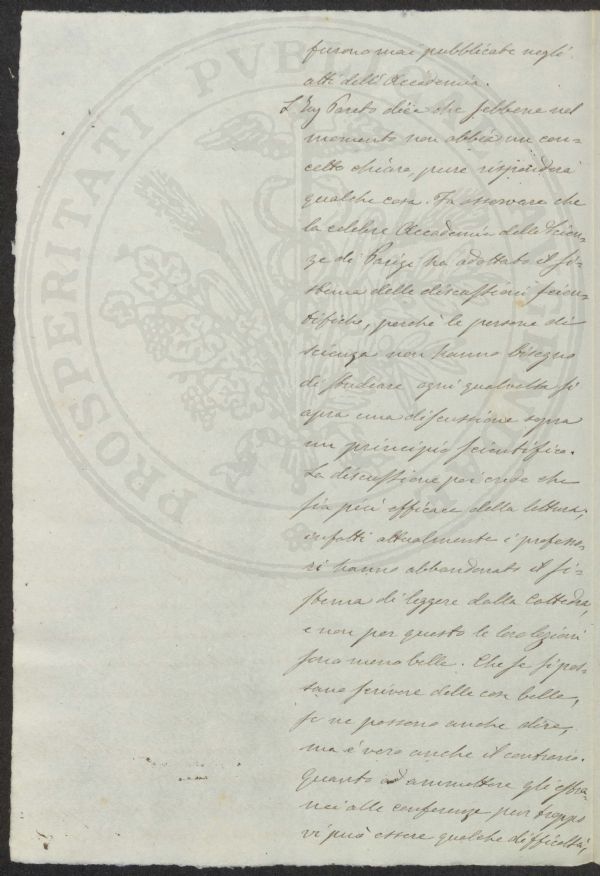 furono mai pubblicate negli
atti dell'Accademia.
L'Ing Pareto dice che sebbene nel
momento non abbia un con=
cetto chiaro, pure risponderà
qualche cosa. Fa osservare che
la celebre Accademia delle Scien=
ze di Parigi ha adottato il si=
stema delle discussioni scien=
tifiche, perchè le persone di
scienza non hanno bisogno
di studiare ogni qualvolta si
apra una discussione sopra
un principio scientifico.
La discussione poi crede che
sia più efficace della lettura;
infatti attualmente i professo=
ri hanno abbandonato il si=
stema di leggere dalla Cattedra,
e non per questo le loro lezioni
sono meno belle. Che se si pos=
sano scrivere delle cose belle,
se ne possono anche dire,
ma è vero anche il contrario.
Quanto ad ammettere gli estra=
nei alle conferenze pur troppo
vi può essere qualche difficoltà,
PROSPERITATI PVBLI